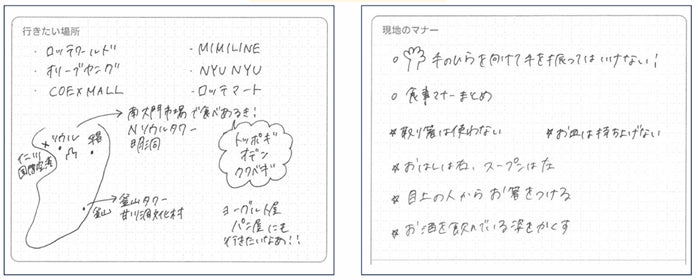 行きたい場所
・ロッテワールド
・MIMILINE
・オリーブヤング
・NYUNYU
・COEXMALL
・ロッテマート
南大門市場で食べあるき!
Nソウルタワー
明洞
トッポギ
オデン
クァベギ
ソウル
仁川
国際空港
釜山
釜山タワー
甘川洞文化村
ヨーグルト屋
パン屋にも
行きたいなぁ!!
現地のマナー
手のひらを向けて手を振ってはいけない!
食事マナーまとめ
*取り箸は使わない
*お皿は持ち上げない
*おはしは右、スープンは左
*目上の人からお箸をつける
*お酒を飲んでいる姿をかくす